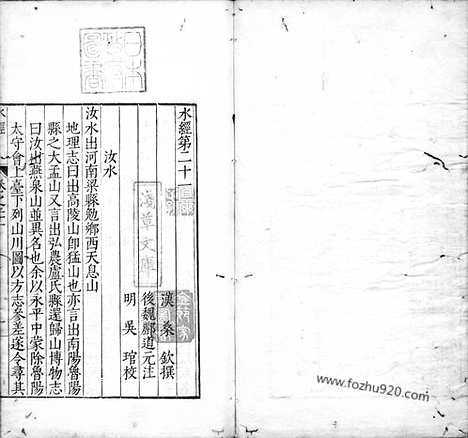 水經第二十一
漢 桑 欽 撰
後魏酈道元注
明 吳 琯 校
汝水
汝水出河南梁縣勉鄉西天息山
地理志曰出高陵山卽猛山也亦言出南陽魯陽
縣之大孟山又言出弘農盧氏縣還歸山博物志
曰汝出燕泉山並異名也余以永平中蒙除魯陽
太守會上臺下列山川圖以方志參差遂令尋其
水經
海草文庫
www.fozhu920.com